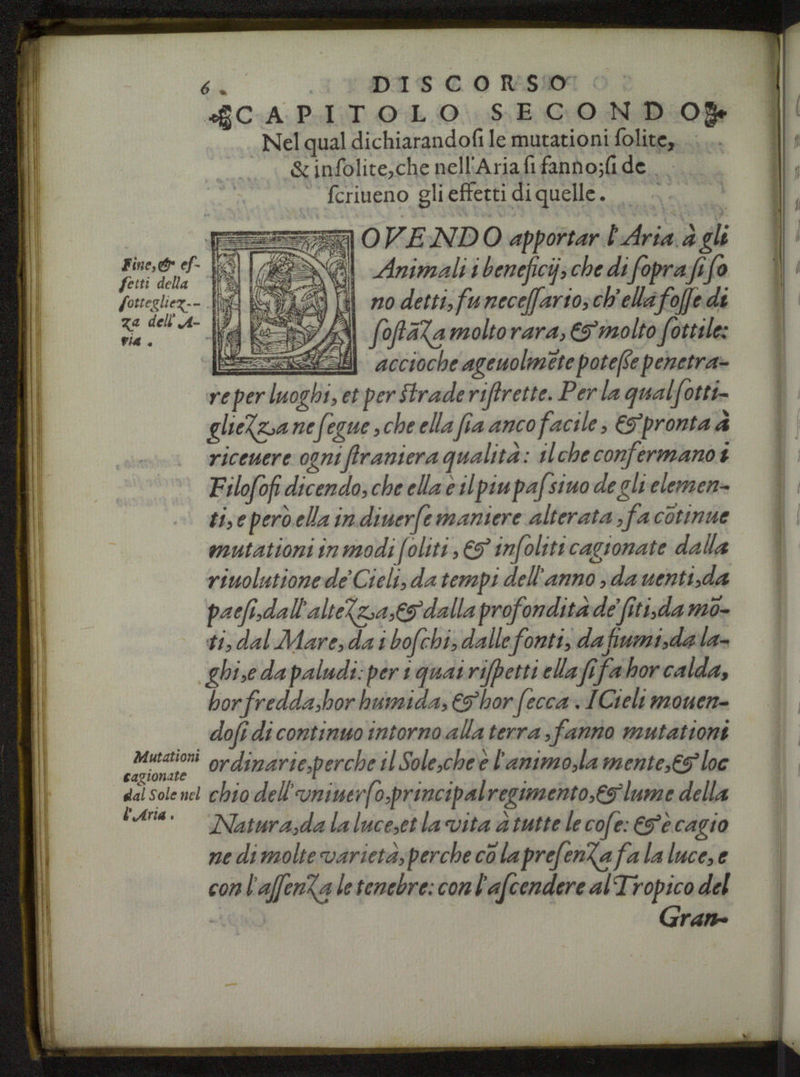 6. DISCORSO
CAPITOLO SECONDO
Nel qual dichiarandoſi le mutationi ſolite,
& inſolite,che nell'Aria ſi fanno;ſi de
ſcriueno gli effetti di quelle.
Fine,& ef-
fetti della
ſottegliez--
za dell' A-
ria .
DOVENDO apportar l'Aria à gli
Animali i beneficij, che di ſopra ſi ſo
no detti, fu neceſſario, ch'ella foſſe di
ſoſtãza molto rara, & molto ſottile:
accioche ageuolmẽte poteße penetra-
re per luoghi, et per ſtrade riſtrette. Per la qual ſotti-
gliezza ne ſegue , che ella ſia anco facile , & pronta à
riceuere ogni ſtraniera qualità : il che confermano i
Filoſofi dicendo, che ella è il piu paſsiuo de gli elemen-
ti, e però ella in diuerſe maniere alterata , fa cõtinue
mutationi in modi ſoliti , & inſoliti cagionate dalla
riuolutione de' Cieli, da tempi dell'anno , da uenti,da
paeſi,dall'altezza,& dalla profondità de' ſiti,da mõ-
ti, dal Mare, da i boſchi, dalle fonti, da fiumi,da la-
ghi,e da paludi: per i quai riſpetti ella ſi fa hor calda,
hor fredda,hor humida, & hor ſecca . I Cieli mouen-
doſi di continuo intorno alla terra , fanno mutationi
Mutationi
cagionate
dal Sole nel
l'Aria .
ordinarie,perche il Sole,che è l'animo,la mente,& loc
chio dell'vniuerſo,principal regimento,& lume della
Natura,da la luce,et la vita à tutte le coſe: & è cagio
ne di molte varietà, perche cõ la preſenza fa la luce, e
con l'aſſenza le tenebre: con l'aſcendere al Tropico del
Gran-